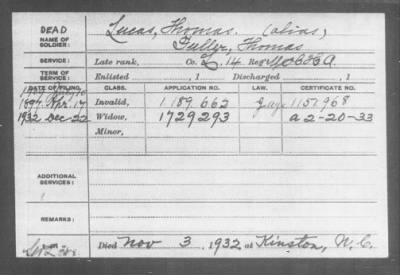 DEAD
NAME OF SOLDIER: Lucas, Thomas. (alias)
Fuller, Thomas
SERVICE: Late rank, Co. L. 14 Reg't
TERM OF SERVICE: Enlisted , 1 Discharged , 1
DATE OF FILING. CLASS. APPLICATION NO. LAW. CERTIFICATE NO.
1897 Apr. 17 Invalid, 1189662 1151968
1932 Dec-22 Widow, 1729293 a 2-20-33
Minor,
ADDITIONAL SERVICES:
REMARKS:
Died Nov 3, 1932 at Kinston, N.C.